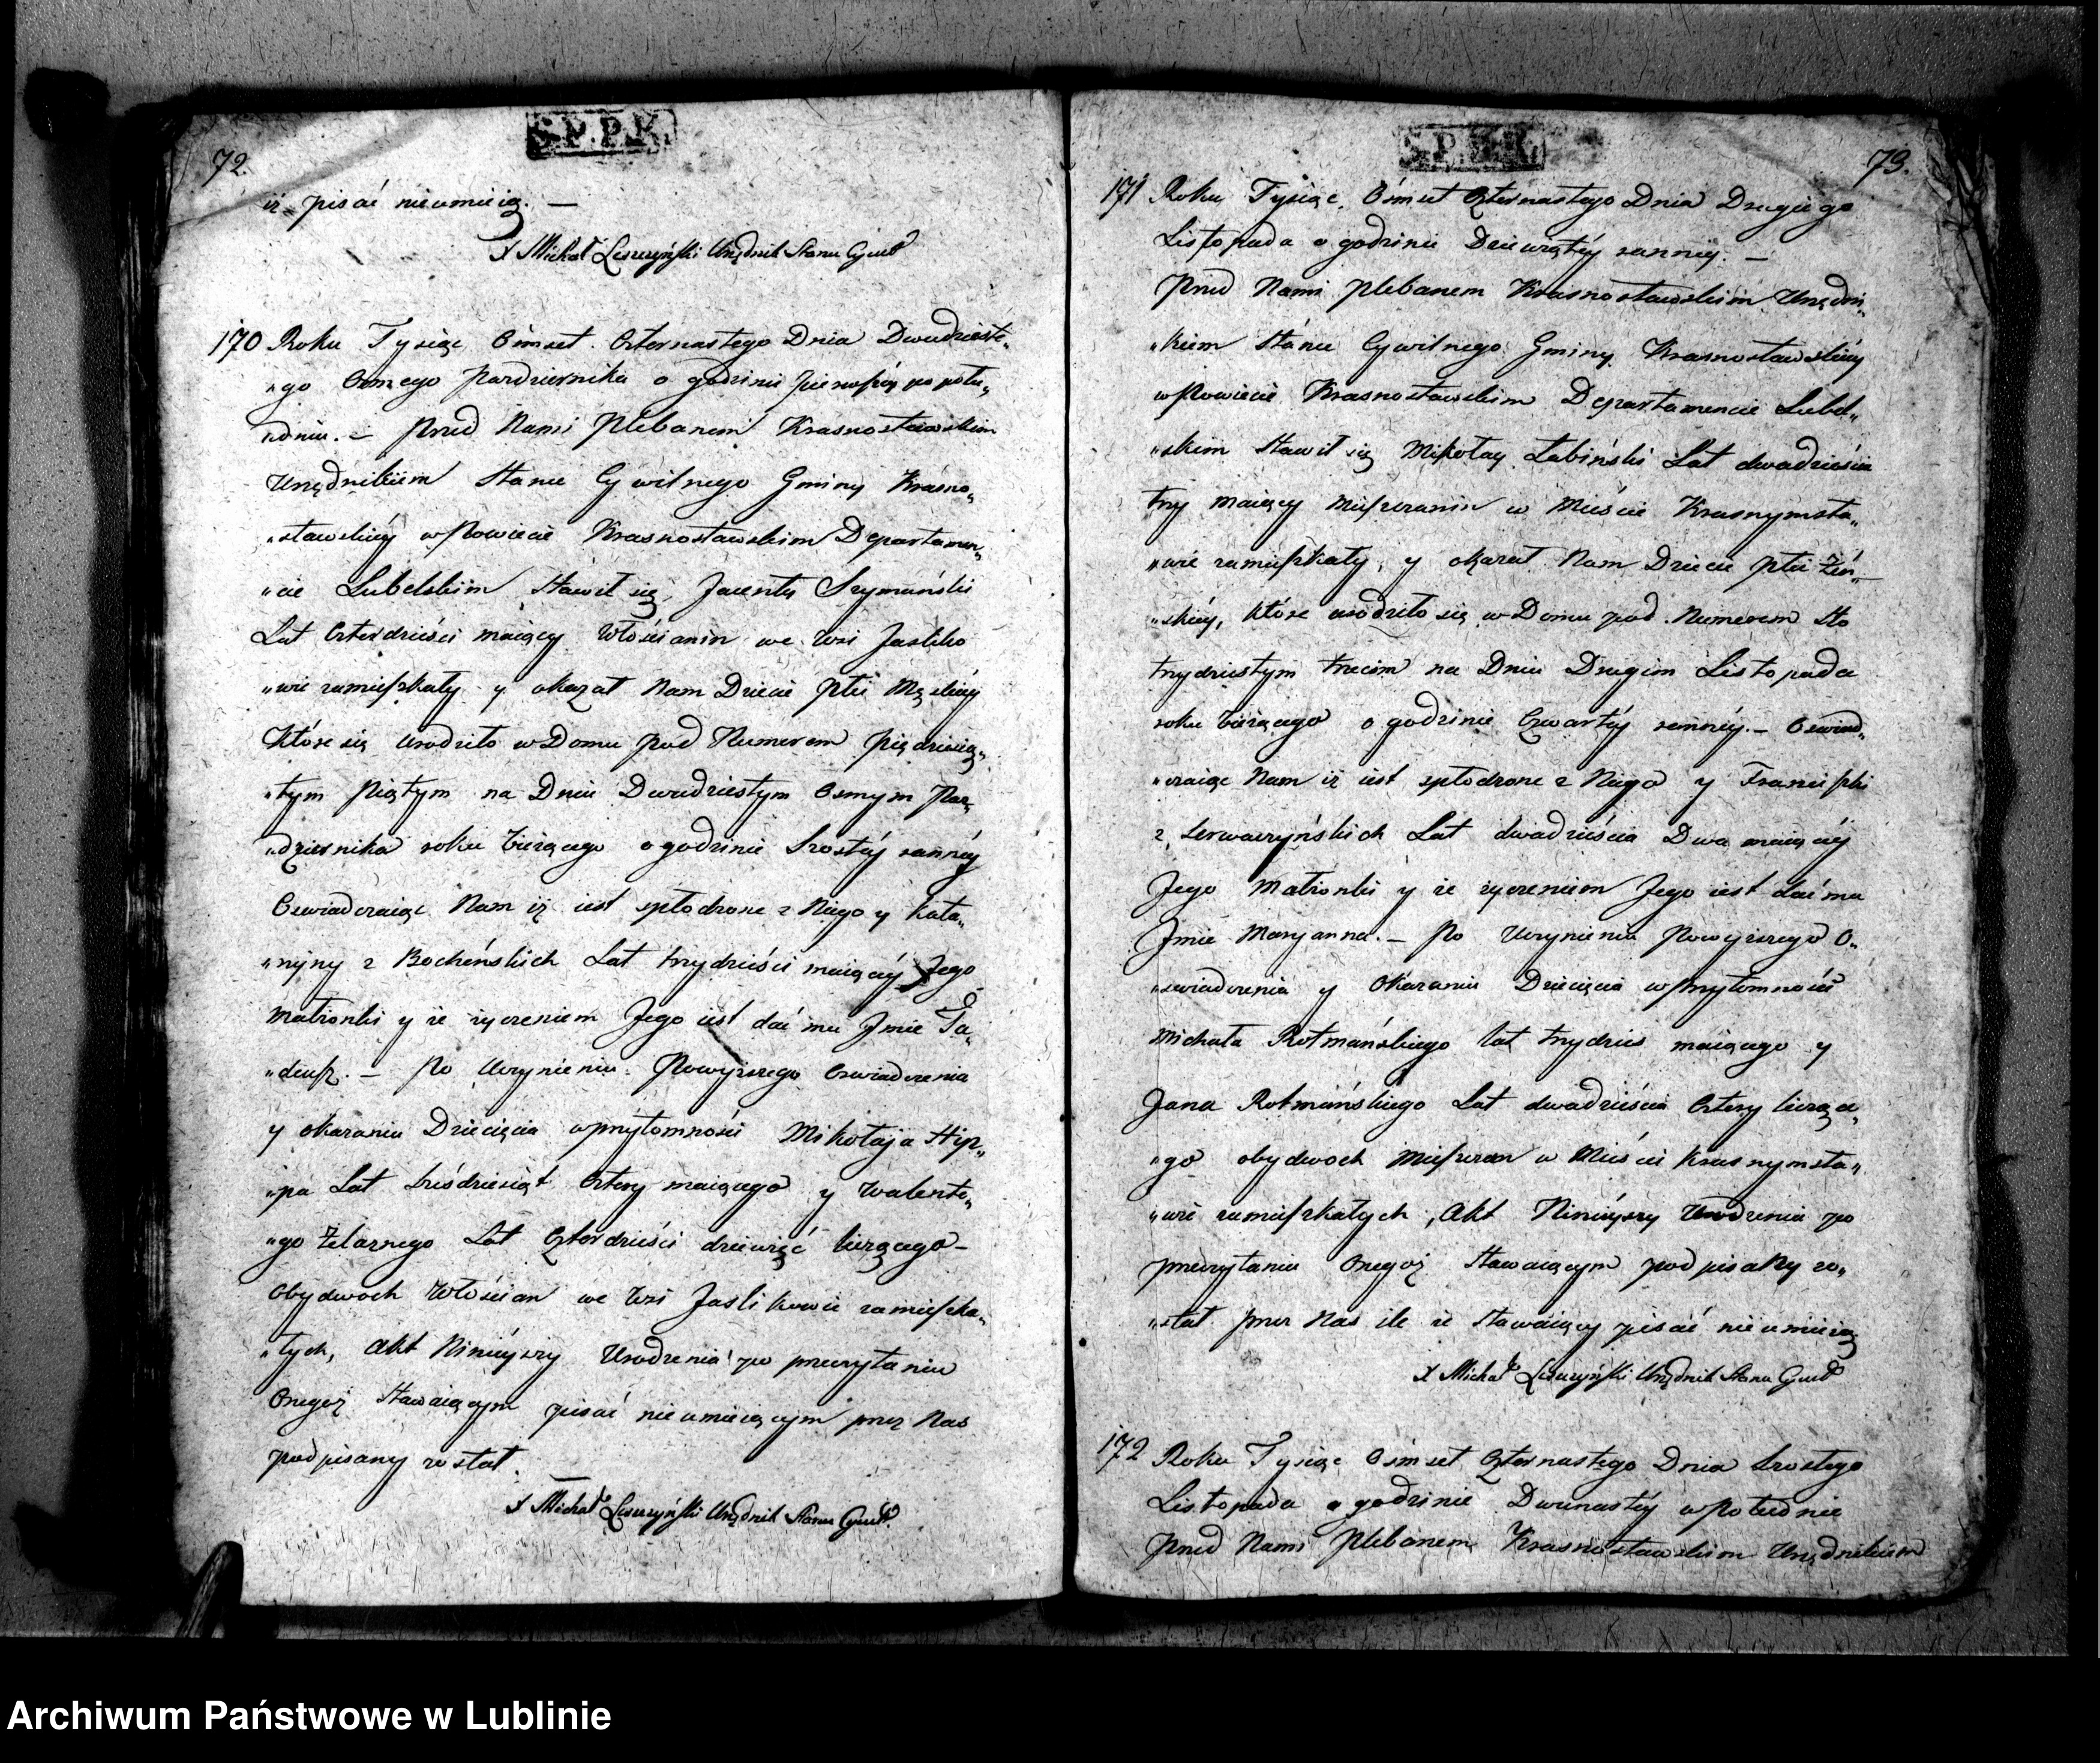 72.
S.P.P.K.
iż pisać nieumieią. —
X Michał Leszczyński Urzędnik Stanu Cywil
170 Roku Tysiąc Ośmset Czternastego Dnia Dwudzieste„
„go Osmego Pazdziernika o godzinie pierwszey popołu„
„dniu. — Przed Nami Plebanem Krasnostawskim
Urzędnikiem Stanu Cywilnego Gminy Krasno„
„stawskiey w Powiecie Krasnostawskim Departamen„
„cie Lubelskim Stawił się Jacenty Szymański
Lat Czterdzieści maiący Włościanin we Wsi Jasliko
„wie zamieszkały y okazał Nam Dziecie płci Męskiey
Które się urodziło w Domu pod Numerem pięćdziesią„
„tym Piątym na Dniu Dwudziestym Osmym Paz„
„dziernika roku bieżącego o godzinie Szostéy rannéy
Oswiadczaiąc Nam iż iest spłodzone z Niego y Kata„
„rzyny z Bocheńskich Lat trzydzieści maiącéy Jego
Małżonki y że życzeniem Jego iest dać mu Jmie Ta„
„deusz. — Po Uczynieniu Powyższego Oswiadczenia
y okazaniu Dziecięcia w przytomności Mikołaja Hip„
„pa Lat sześćdziesiąt Cztery maiącego y Walente„
„go Żelaznego Lat Czterdzieści dziewięć liczącego —
Obydwoch Włościan we Wsi Jaslikowie zamieszka„
„łych, Akt Ninieyszy Urodzenia po przeczytaniu
Onegoż Stawaiącym pisać nieumieiącym przez Nas
podpisany został.
X Michał Leszczyński Urzędnik Stanu Cywil.
73.
S.P.P.K.
171 Roku Tysiąc Ośmset Czternastego Dnia Drugiego
Listopada o godzinie Dziewiątéy rannéy. —
Przed Nami Plebanem Krasnostawskim Urzędni„
„kiem Stanu Cywilnego Gminy Krasnostawskiéy
w Powiecie Krasnostawskim Departamencie Lubel„
„skim Stawił się Mikołay Łabiński Lat dwadzieścia
trzy maiący Mieszczanin w Mieście Krasnymsta„
„wie zamieszkały, y okazał Nam Dziecie płci Żeń„
„skiéy, które urodziło się w Domu pod Numerem Sto
trzydziestym trzecim na Dniu Drugim Listopada
roku bieżącego o godzinie Czwartéy rannéy. — Oswiad„
„czaiąc Nam iż iest spłodzone z Niego y Franciszki
z Serwaczyńskich Lat dwadzieścia Dwa maiącéy
Jego Małżonki y że życzeniem Jego iest dać mu
Jmie Maryanna. — Po Uczynieniu Powyższego O„
„swiadczenia y Okazaniu Dziecięcia w Przytomności
Michała Rotmańskiego Lat trzydzieś maiącego y
Jana Rotmańskiego Lat dwadzieścia Cztery liczące„
„go obydwoch Mieszczan w Mieście Krasnymsta„
„wie zamieszkałych, Akt Ninieyszy Urodzenia po
przeczytaniu Onegoż Stawaiącym podpisany zo„
„stał przez Nas ile że Stawaiący pisać nieumieią
X Michał Leszczyński Urzędnik Stanu Cywil
172 Roku Tysiąc Ośmset Czternastego Dnia Szostego
Listopada o godzinie Dwunastéy w Południe
Przed Nami Plebanem Krasnostawskim Urzędnikiem
Archiwum Państwowe w Lublinie